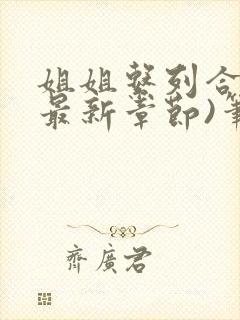 姐姐整列合
最新章節)筆
齊廣君